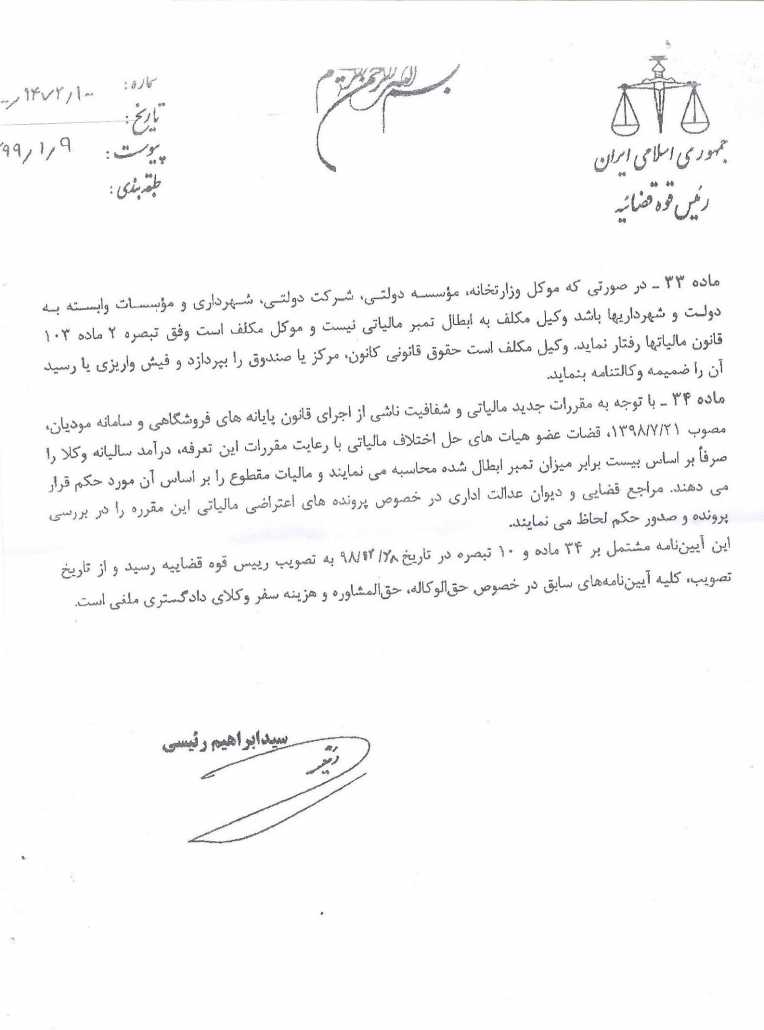 بسم الله الرحمن الرحیم
جمهوری اسلامی ایران
رئیس قوه قضائیه
شماره:
تاریخ:
۹۹/۱/۹
پیوست:
طبقه بندی:
ماده ۳۳ ـ در صورتی که موکل وزارتخانه، مؤسسه دولتی، شرکت دولتی، شهرداری و مؤسسات وابسته به
دولت و شهرداریها باشد وکیل مکلف به ابطال تمبر مالیاتی نیست و موکل مکلف است وفق تبصره ۲ ماده ۱۰۳
قانون مالیاتها رفتار نماید. وکیل مکلف است حقوق قانونی کانون، مرکز یا صندوق را بپردازد و فیش واریزی یا رسید
آن را ضمیمه وکالتنامه بنماید.
ماده ۳۴ ـ با توجه به مقررات جدید مالیاتی و شفافیت ناشی از اجرای قانون پایانه های فروشگاهی و سامانه مودیان،
مصوب ۱۳۹۸/۷/۲۱، قضات عضو هیات های حل اختلاف مالیاتی با رعایت مقررات این تعرفه، درآمد سالیانه وکلا را
صرفاً بر اساس بیست برابر میزان تمبر ابطال شده محاسبه می نمایند و مالیات مقطوع را بر اساس آن مورد حکم قرار
می دهند. مراجع قضایی و دیوان عدالت اداری در خصوص پرونده های اعتراضی مالیاتی این مقرره را در بررسی
پرونده و صدور حکم لحاظ می نمایند.
این آیین‌نامه مشتمل بر ۳۴ ماده و ۱۰ تبصره در تاریخ ۹۸/۱۲/۲۸ به تصویب رییس قوه قضاییه رسید و از تاریخ
تصویب، کلیه آیین‌نامه‌های سابق در خصوص حق‌الوکاله، حق‌المشاوره و هزینه سفر وکلای دادگستری ملغی است.
سیدابراهیم رئیسی